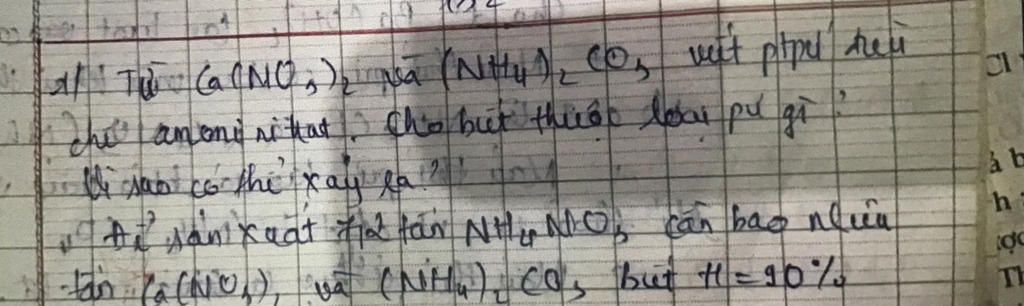 Từ Ca(NO3)2 và (NH4)2CO3 viết ptpư điều
chế amoni nitrat. Cho biết thuộc loại pư gì?
Vì sao có thể xảy ra?
Để sản xuất tấn NH4NO3 cần bao nhiêu
tấn Ca(NO3)2 và (NH4)2CO3 biết H = 90%